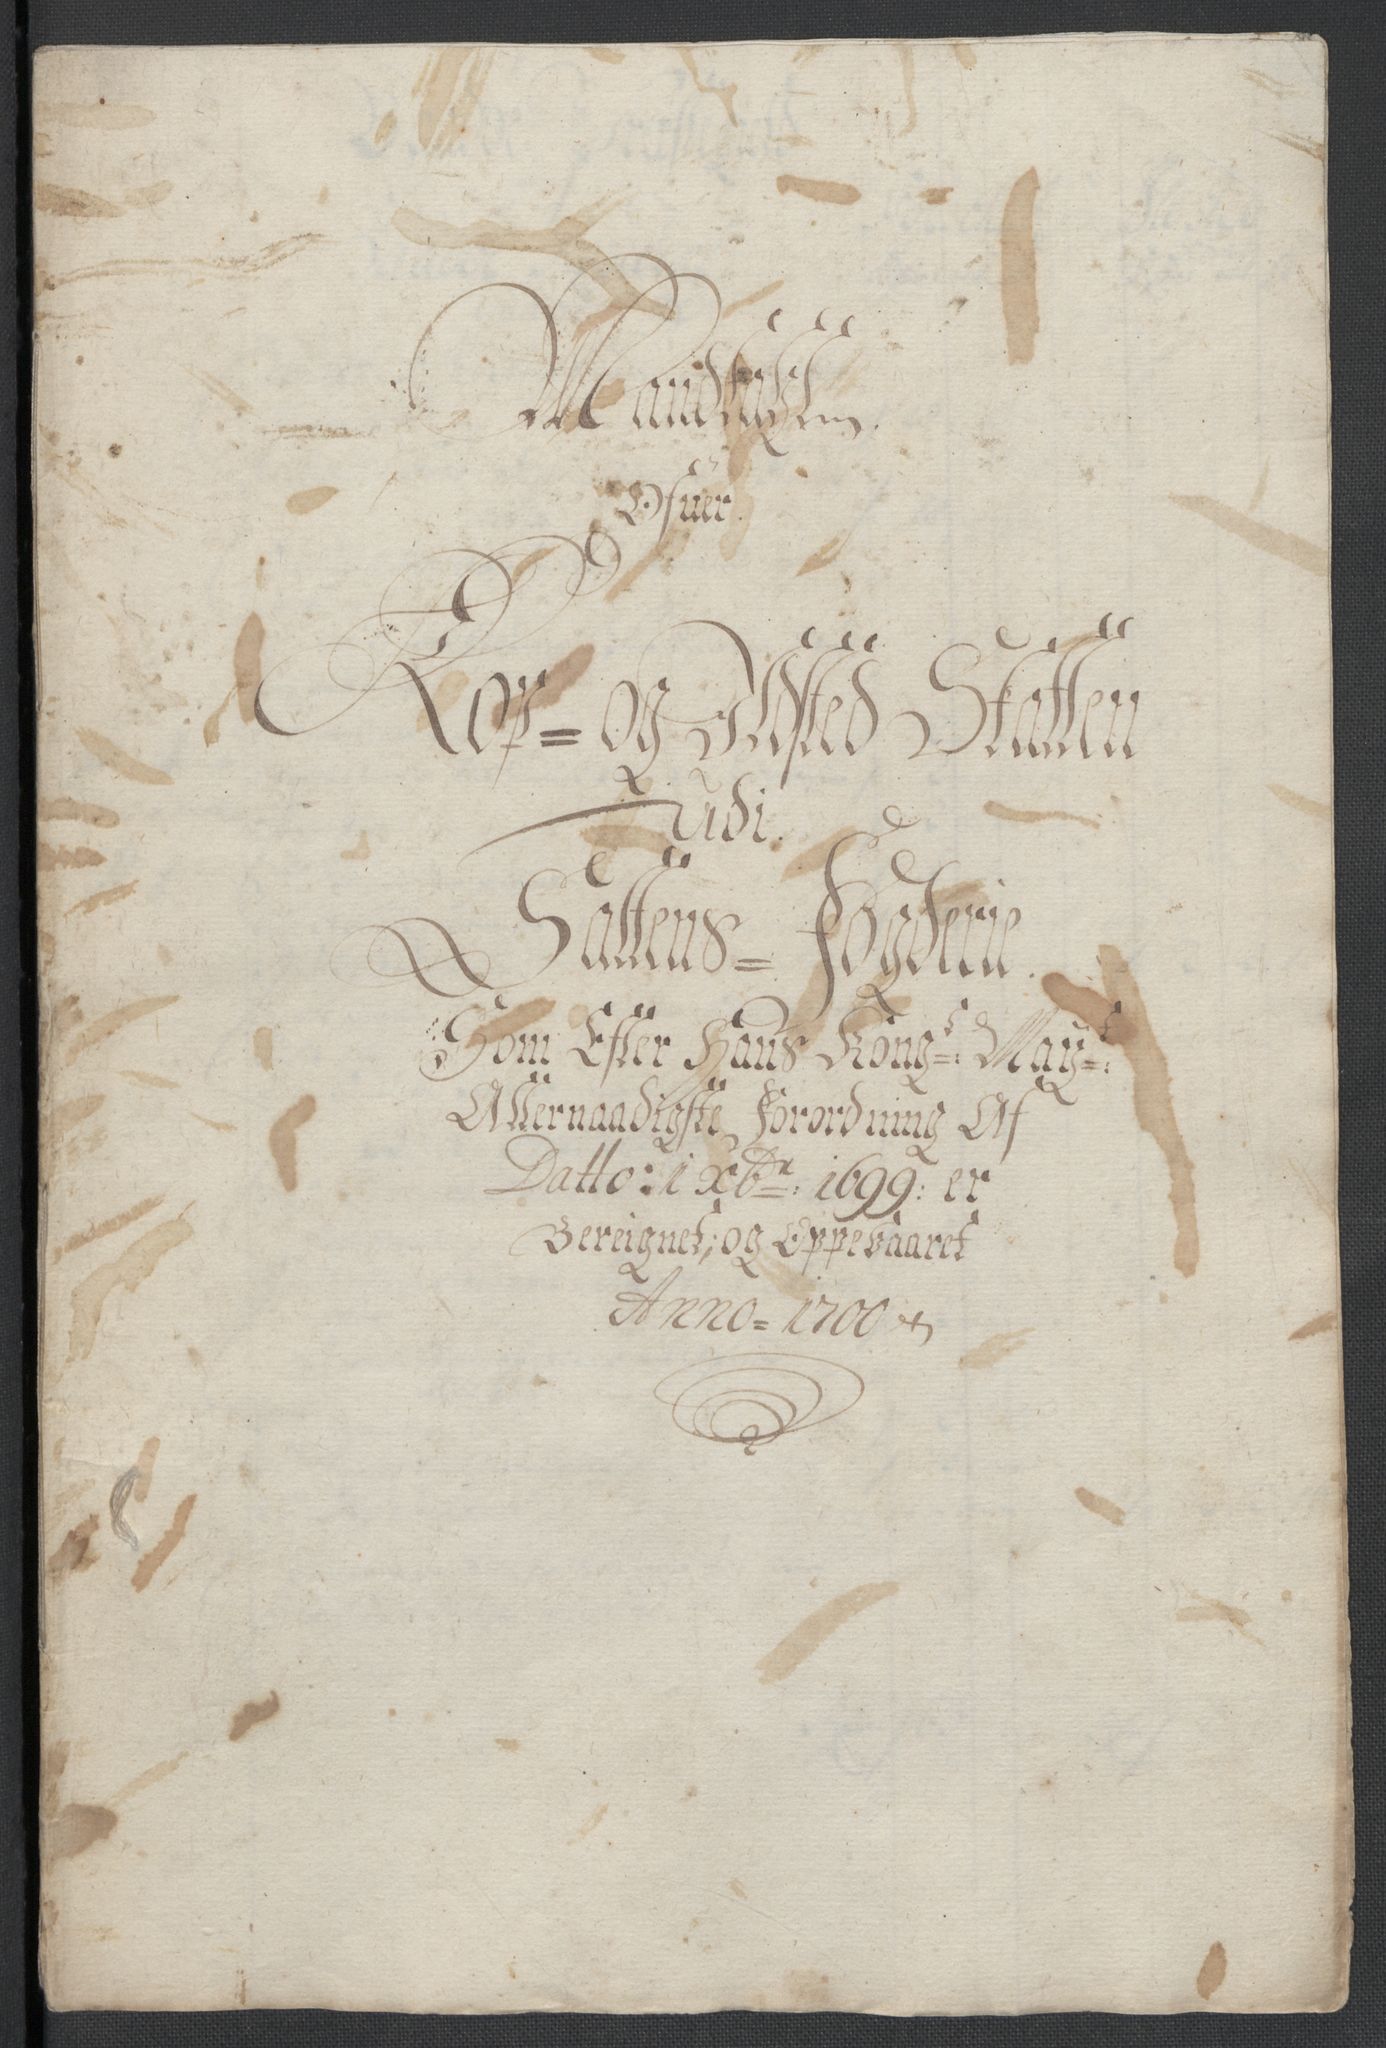 Mandtallen
Ofuer
Kop= og Ildsted Skatten
udi.
Saltens= Fogderie.
Som Efter Hans Kong: May:
Allernaadigste Forordning Af
Datto: 1 Xbr: 1699: er
Bereignet, og Oppebaaret
Anno= 1700